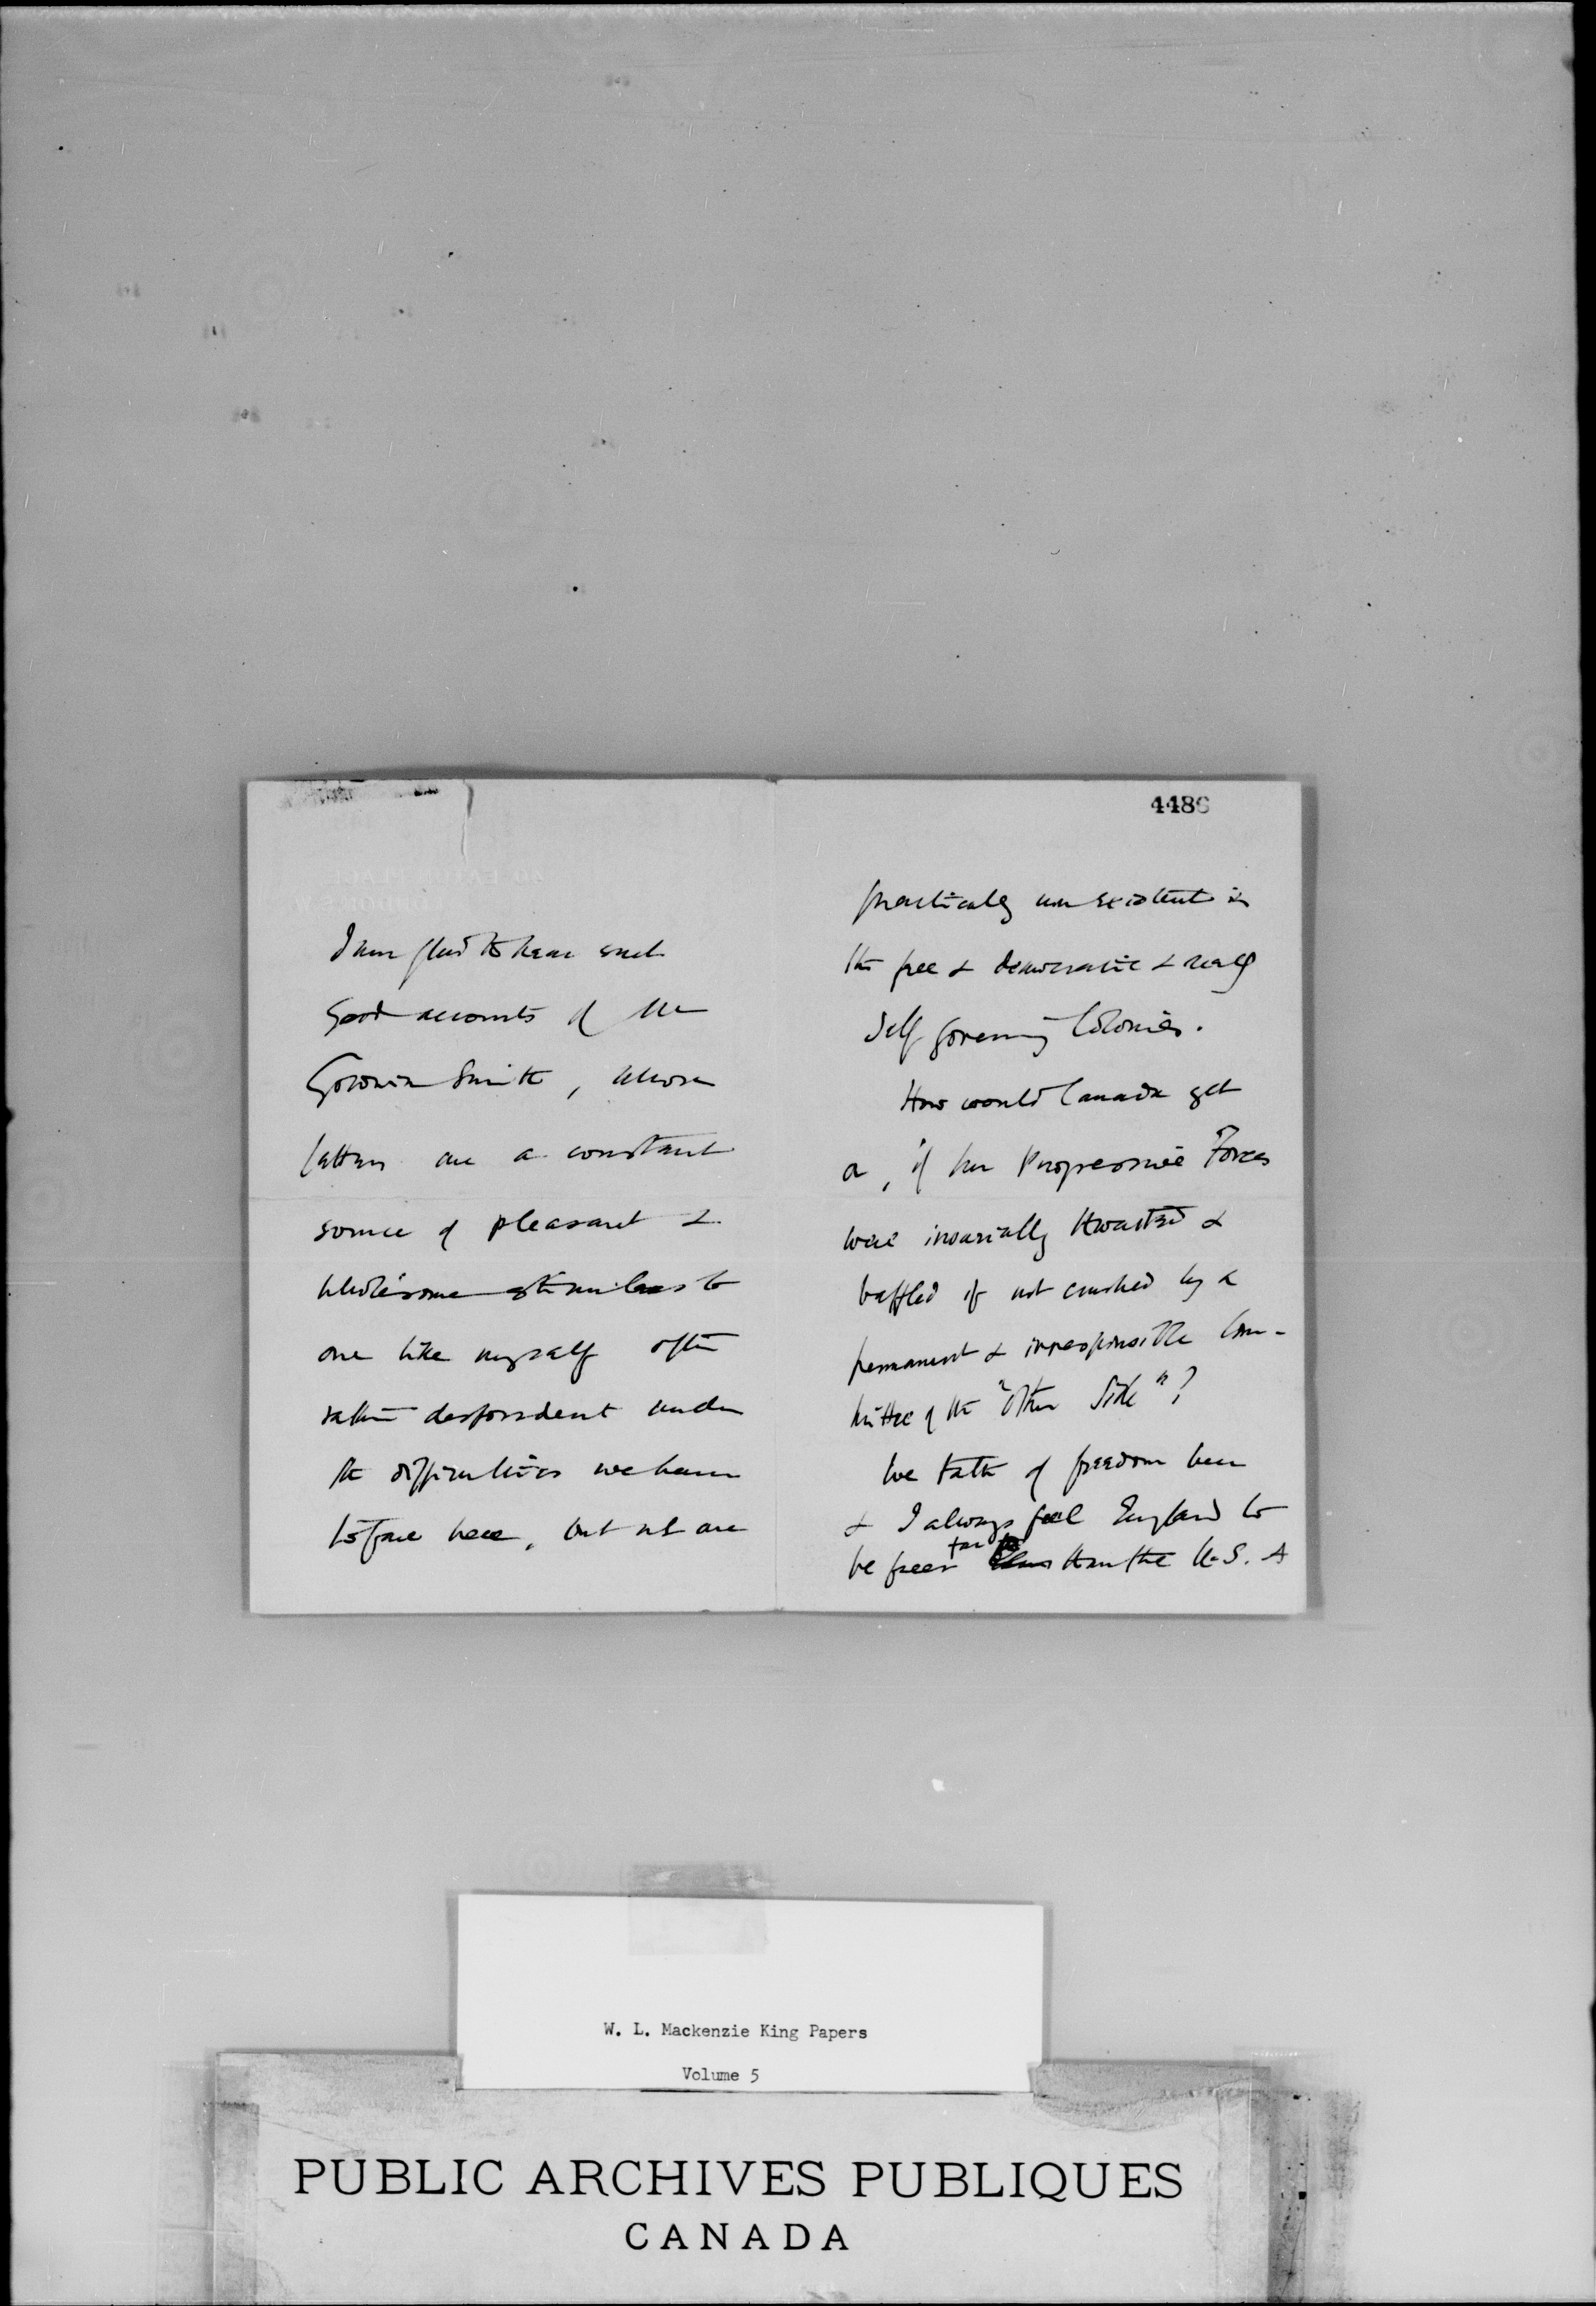 I am glad to hear such
good accounts of Mr
Goldwin Smith, whose
letters are a constant
source of pleasant &
wholesome stimulus to
one like myself often
rather despondent under
the difficulties we have
to face here, but wh are
4486
practically non existent in
the free & democratic & really
self governing Colonies.
How would Canada get
on, if her Progressive Forces
were invariably thwarted &
baffled if not crushed by a
permanent & irresponsible Com-
mittee of the "Other Side"?
We talk of freedom here
& I always feel England to
be freer far than the U.S.A
W. L. Mackenzie King Papers
Volume 5
PUBLIC ARCHIVES PUBLIQUES
CANADA